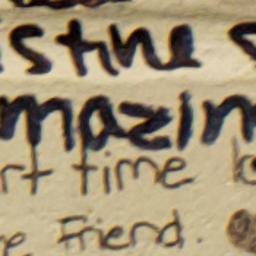 stine
mazin
rt time
Friend.